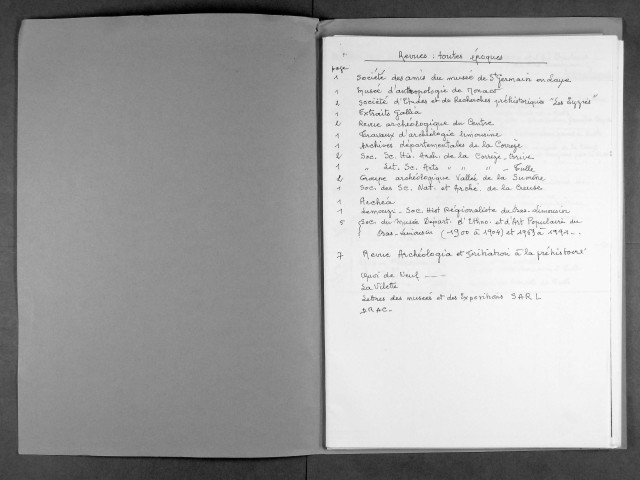 Revues : toutes époques
page
1 Société des amis du musée de St Germain en Laye
1 Musée d'anthropologie de Monaco
2 Société d'Etudes et de Recherches préhistoriques "Les Eyzies"
1 Extraits Gallia
2 Revue archéologique du Centre
1 Travaux d'archéologie limousine
1 Archives départementales de la Corrèze
2 Soc. Sc. His. Arch. de la Corrèze. Brive
1 " Let. Sc. Arts " " " - Tulle
2 Groupe archéologique Vallée de la Sumène
1 Soc. des Sc. Nat. et Arché. de la Creuse
1 Archéa
1 Lemouzi - Soc. Hist Régionaliste du Bas-Limousin
5 Soc. du Musée Départ. d'Ethno. et d'Art Populaire du
Bas-Limousin (-1900 à 1904) et 1963 à 1991 -.
7 Revue Archéologia et Initiation à la préhistoire
Quoi de Neuf ---
La Vilette
Lettres des musées et des Expositions SARL
DRAC-